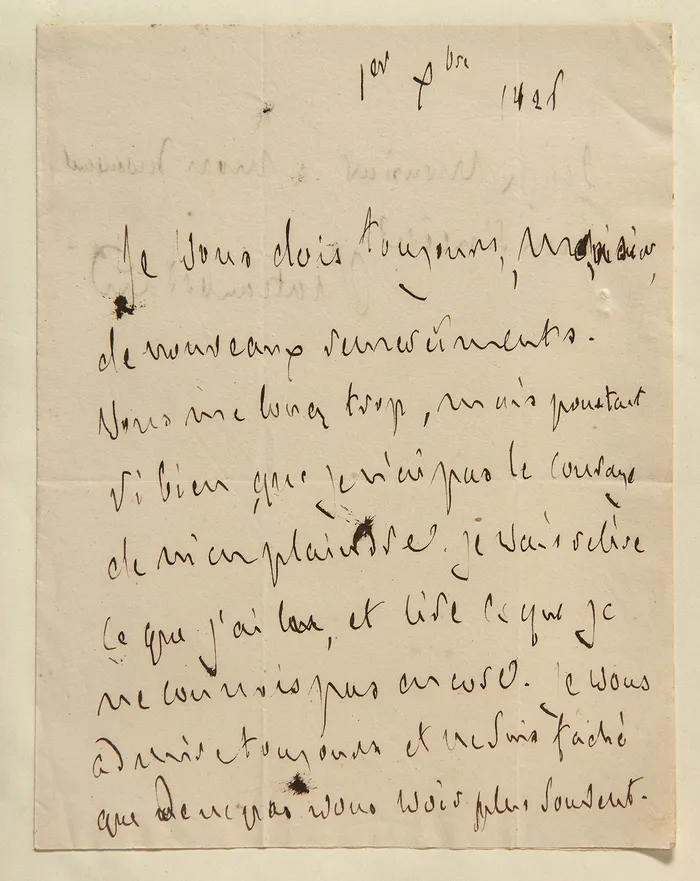 1er Xbre 1828
Je vous dois toujours, monsieur,
de nouveaux remerciements.
Vous me louez trop, mais pourtant
si bien que je n'ai pas le courage
de m'en plaindre. Je vais relire
ce que j'ai lu, et lire ce que je
ne connois pas encore. Je vous
admire toujours et ne suis faché
que de ne pas vous voir plus souvent.